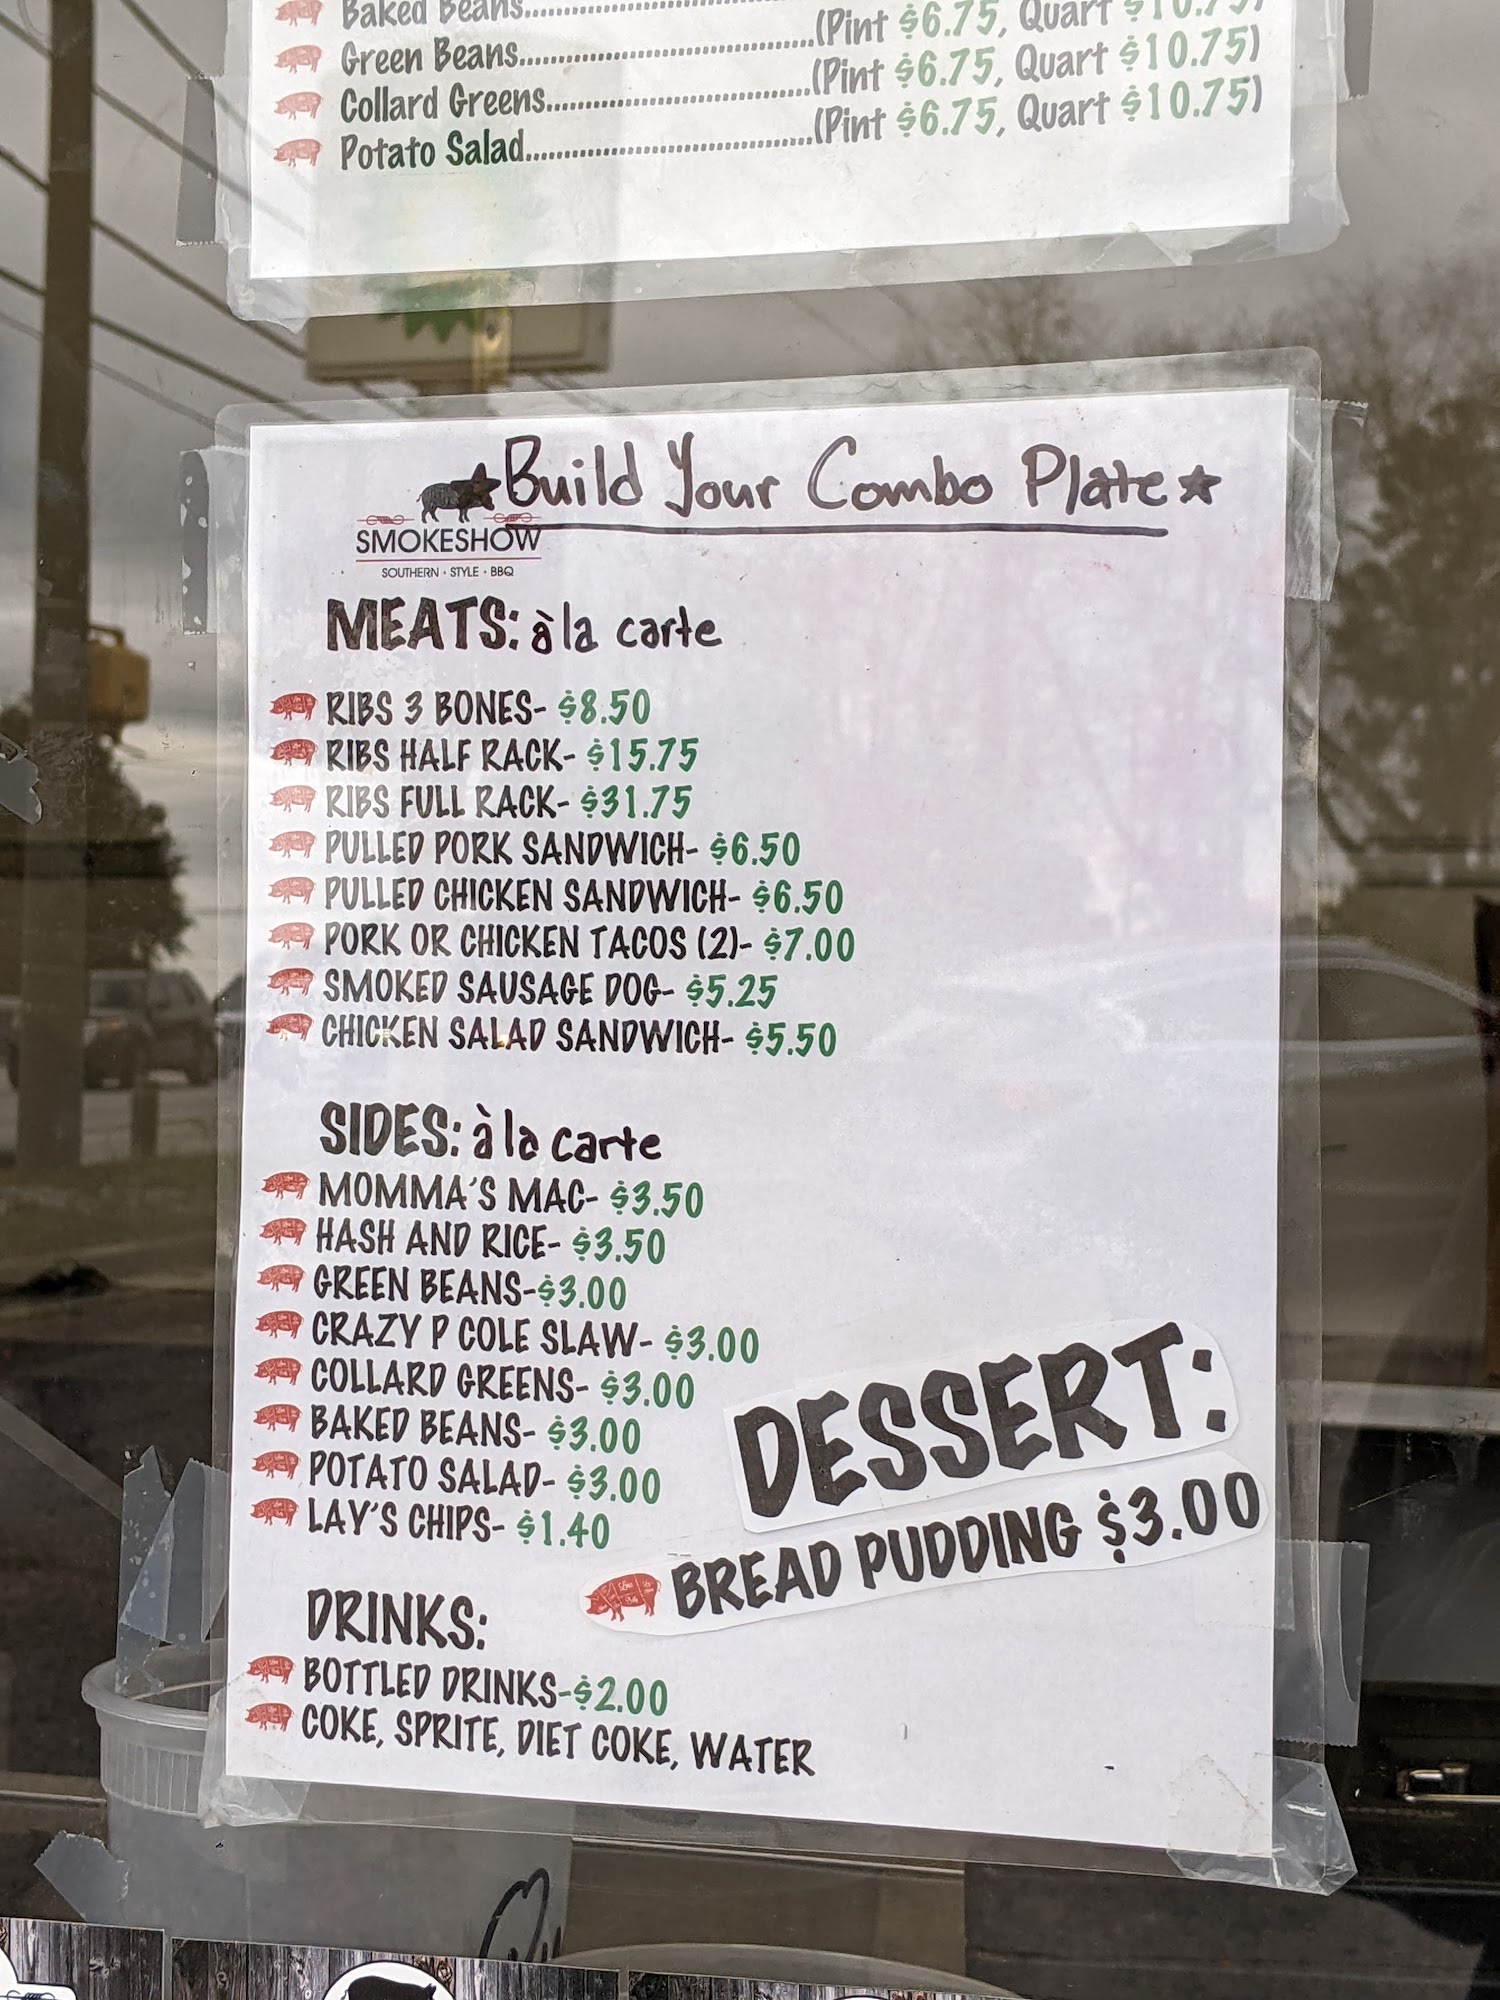 Baked Beans.............................(Pint $6.75, Quart $10.75)
Green Beans.............................(Pint $6.75, Quart $10.75)
Collard Greens.............................(Pint $6.75, Quart $10.75)
Potato Salad.............................
★Build Your Combo Plate★
SMOKESHOW
SOUTHERN • STYLE • BBQ
MEATS: à la carte
RIBS 3 BONES- $8.50
RIBS HALF RACK- $15.75
RIBS FULL RACK- $31.75
PULLED PORK SANDWICH- $6.50
PULLED CHICKEN SANDWICH- $6.50
PORK OR CHICKEN TACOS (2)- $7.00
SMOKED SAUSAGE DOG- $5.25
CHICKEN SALAD SANDWICH- $5.50
SIDES: à la carte
MOMMA'S MAC- $3.50
HASH AND RICE- $3.50
GREEN BEANS-$3.00
CRAZY P COLE SLAW- $3.00
COLLARD GREENS- $3.00
BAKED BEANS- $3.00
POTATO SALAD- $3.00
LAY'S CHIPS- $1.40
DESSERT:
BREAD PUDDING $3.00
DRINKS:
BOTTLED DRINKS-$2.00
COKE, SPRITE, DIET COKE, WATER